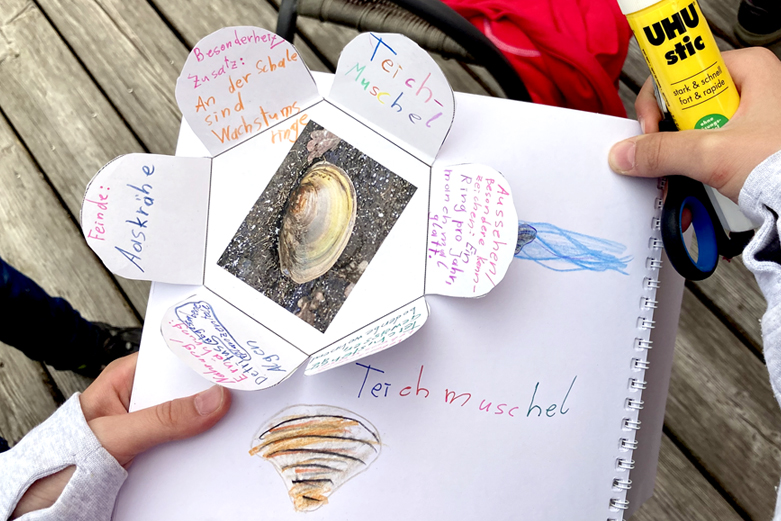 Besonderheit/
Zusatz:
An der Schale
sind
Wachstums
ringe
Teich-
Muschel
Aussehen/
Besondere kenn-
zeichen: Ein
Ring pro Jahr,
manchmal
glatt.
Feinde:
Adskrähe
Nahrung/
Ernährung:
Algen
Teichmuschel
UHU
stic
stark & schnell
fort & rapide